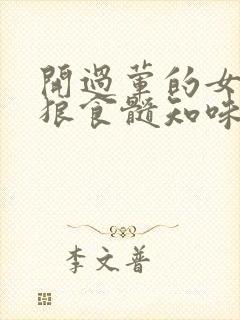 開過葷的女
狠食髓知味
李文普